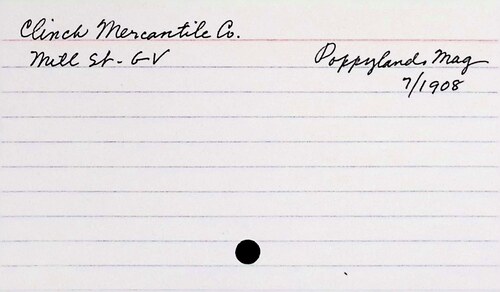 Clinch Mercantile Co.
Mill St - GV
Poppylands Mag
7/1908